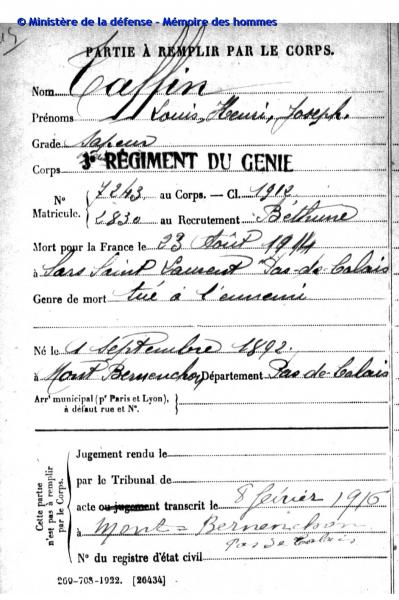 © Ministère de la défense - Mémoire des hommes
PARTIE À REMPLIR PAR LE CORPS.
Nom Taffin
Prénoms Louis, Henri, Joseph,
Grade sapeur
Corps 3e RÉGIMENT DU GENIE
N° Matricule. { 7243 au Corps. — Cl. 1912
2830 au Recrutement Béthune
Mort pour la France le 23 Août 1914
à Sars Saint Laurent Pas-de-Calais
Genre de mort tué à l'ennemi
Né le 1 septembre 1892.
à Mont Bernenchon Département Pas-de-Calais
Arrt municipal (pr Paris et Lyon),
à défaut rue et N°.
Cette partie n'est pas à remplir par le Corps.
Jugement rendu le
par le Tribunal de
acte ou jugement transcrit le 8 février 1916
à Mont = Bernenchon
Pas de Calais
N° du registre d'état civil
269-708-1922. [26434]